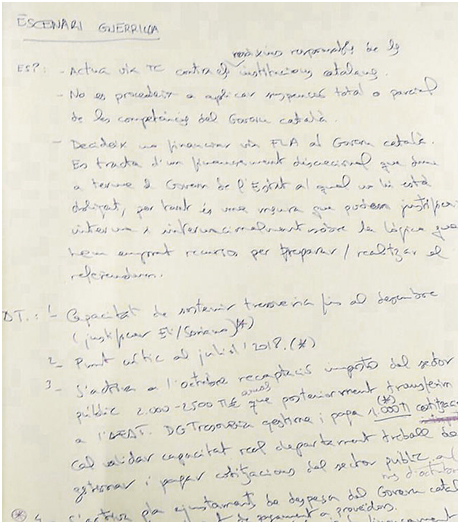 ESCENARI GUERRILLA
màxims responsables de les
ESP: - Actua via TC contra els institucions catalanes.
- No es procedeix a aplicar suspensió total o parcial
de les competències del Govern català.
- Decideix no finançar via FLA al Govern català.
Es tracta d'un finançament discrecional que duu
a terme el Govern de l'Estat al qual no hi està
obligat, per tant és una mesura que podrien justificar
interna i internacionalment sobre la lògica que
hem emprat recursos per preparar / realitzar el
referèndum.
DT.: 1- Capacitat de sostenir tresoreria fins al desembre
(justificar Eli/Soriano)(*)
2- Punt crític al juliol 2018. (*)
3- S'activa a l'octubre recaptació impostos del sector
públic 2.000-2500 M€ que posteriorment transferim
a l'AEAT. DG Tresoreria gestiona i paga
cotitzacions
Cal validar capacitat real departament treball de
gestionar i pagar cotitzacions del sector públic al
mes d'octubre
(*) 4. S'activa pla ajustaments de despesa del Govern català
de pagament a proveïdors.